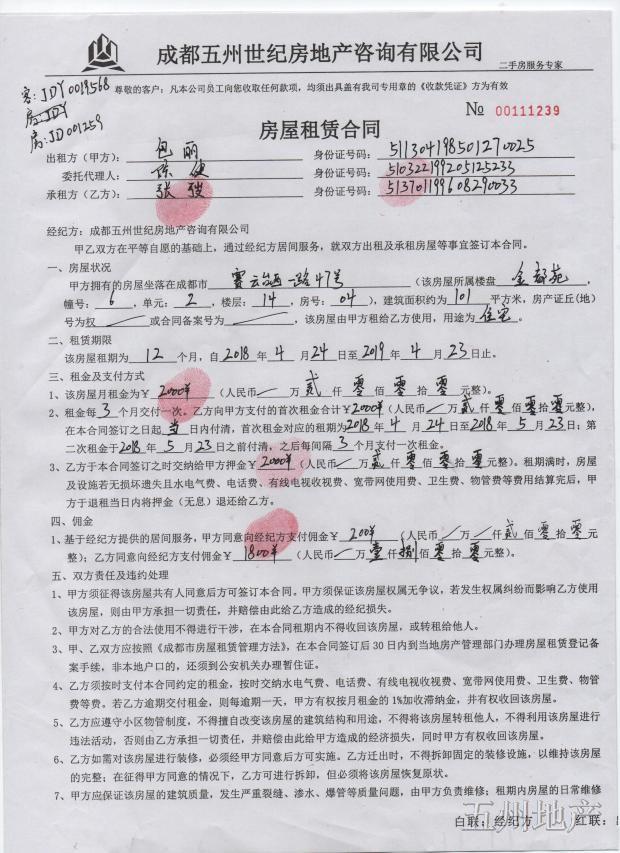 成都五州世纪房地产咨询有限公司
二手房服务专家
客:JDY0019568
房:JDY
房:JD001259
尊敬的客户:凡本公司员工向您收取任何款项,均须出具盖有我司专用章的《收款凭证》方为有效
№ 00111239
房屋租赁合同
出租方(甲方): 包丽 身份证号码: 511304198501270025
委托代理人: 陈健 身份证号码: 510322199205125233
承租方(乙方): 张 身份证号码: 513701199608290033
经纪方:成都五州世纪房地产咨询有限公司
甲乙双方在平等自愿的基础上,通过经纪方居间服务,就双方出租及承租房屋等事宜签订本合同。
一、房屋状况
甲方拥有的房屋坐落在成都市 赛云台西一路47号 (该房屋所属楼盘 金都苑,
幢号: 6 ,单元: 2 ,楼层: 14 ,房号: 04 ),建筑面积约为 101 平方米,房产证丘(地)
号为权 / 或合同备案号为 / ,该房屋由甲方租给乙方使用,用途为 住宅。
二、租赁期限
该房屋租期为 12 个月,自 2018 年 4 月 24 日至 2019 年 4 月 23 日止。
三、租金及支付方式
1、该房屋月租金为¥ 2000# (人民币 / 万 贰 仟 零 佰 零 拾 零 元整)。
2、租金每 3 个月交付一次。乙方向甲方支付的首次租金合计¥ 2000# (人民币 / 万 贰 仟 零 佰 零 拾 零 元整),
在本合同签订之日起 当 日内付清,首次租金对应的租期为 2018 年 4 月 24 日至 2018 年 5 月 23 日;第
二次租金于 2018 年 5 月 23 日之前付清,之后每间隔 3 个月支付一次租金。
3、乙方于本合同签订之时交纳给甲方押金¥ 2000# (人民币 / 万 贰 仟 零 佰 零 拾 零 元整)。租期满时,房屋
及设施若无损坏遗失且水电气费、电话费、有线电视收视费、宽带网使用费、卫生费、物管费等费用结算完后,甲
方于退租当日内将押金(无息)退还给乙方。
四、佣金
1、基于经纪方提供的居间服务,甲方同意向经纪方支付佣金¥ 200# (人民币 / 万 / 仟 贰 佰 零 拾 零 元
整);乙方同意向经纪方支付佣金¥ 1800# (人民币 / 万 壹 仟 捌 佰 零 拾 零 元整)。
五、双方责任及违约处理
1、甲方须征得该房屋共有人同意后方可签订本合同。甲方须保证该房屋权属无争议,若发生权属纠纷而影响乙方使用
该房屋,则由甲方承担一切责任,并赔偿由此给乙方造成的经纪损失。
2、甲方对乙方的合法使用不得进行干涉,在本合同租期内不得收回该房屋,或转租给他人。
3、甲、乙双方应按照《成都市房屋租赁管理方法》,在本合同签订后30日内到当地房产管理部门办理房屋租赁登记备
案手续,非本地户口的,还须到公安机关办理暂住证。
4、乙方须按时支付本合同约定的租金,按时交纳水电气费、电话费、有线电视收视费、宽带网使用费、卫生费、物管
费等费。若乙方逾期交付租金,则每逾期一天,甲方有权按月租金的1%加收滞纳金,并有权收回该房屋。
5、乙方应遵守小区物管制度,不得擅自改变该房屋的建筑结构和用途,不得将该房屋转租他人,不得利用该房屋进行
违法活动,否则由乙方承担一切责任,并赔偿由此给甲方造成的经济损失,同时甲方有权收回该房屋。
6、乙方如需对该房屋进行装修,必须经甲方同意后方可实施。乙方迁出时,不得拆卸固定的装修设施,以维持该房屋
的完整;在征得甲方同意的情况下,乙方可进行拆卸,但必须将该房屋恢复原状。
7、甲方应保证该房屋的建筑质量,发生严重裂缝、渗水、爆管等质量问题,由甲方负责维修;租期内房屋的日常维修
五州地产
白联:经纪方 红联: